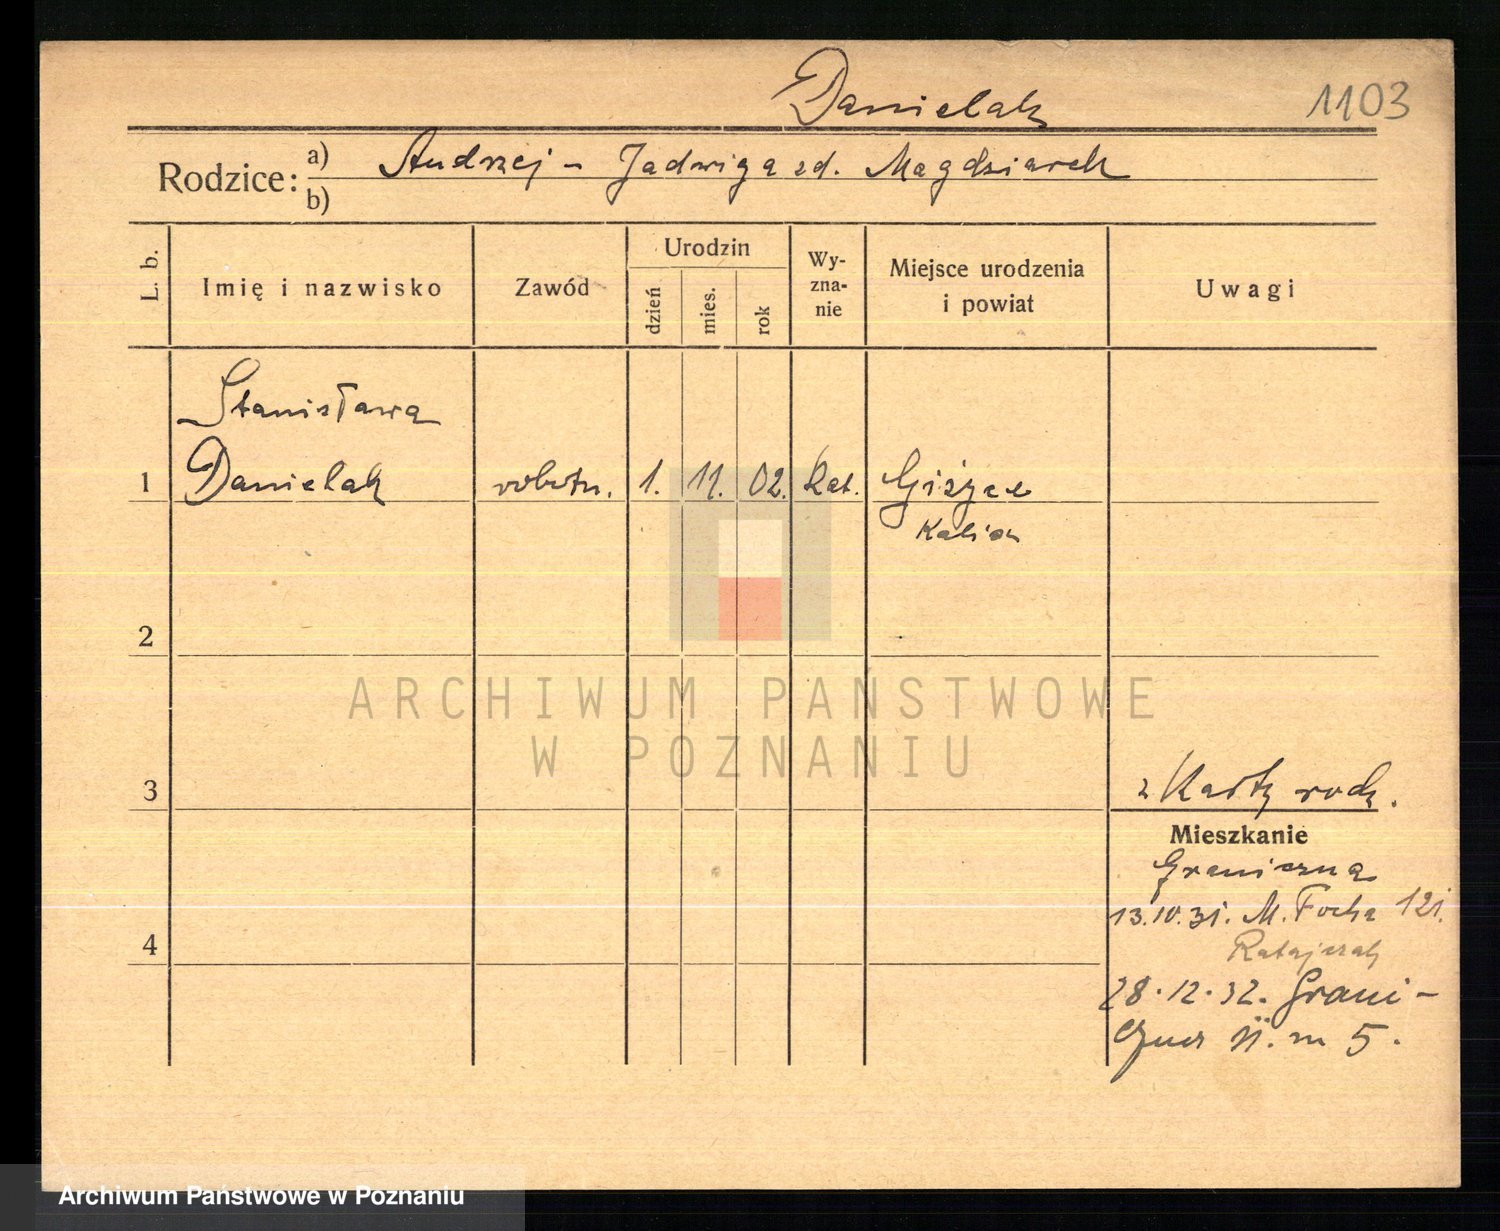 Danielak
1103
Rodzice: a) Andrzej – Jadwiga zd. Magdziarek
b)
L. b.
Imię i nazwisko
Zawód
Urodzin
dzień
mies.
rok
Wy-
zna-
nie
Miejsce urodzenia
i powiat
Uwagi
Stanisława
1 Danielak robotn. 1. 11. 02. Kat. Giżyce
Kalisz
2
ARCHIWUM PAŃSTWOWE
W POZNANIU
3
z Karty rodz.
Mieszkanie
Graniczna
13.10.31. M. Focha 121.
Ratajczak
4
28.12.32. Grani-
czna 11. m 5.
Archiwum Państwowe w Poznaniu